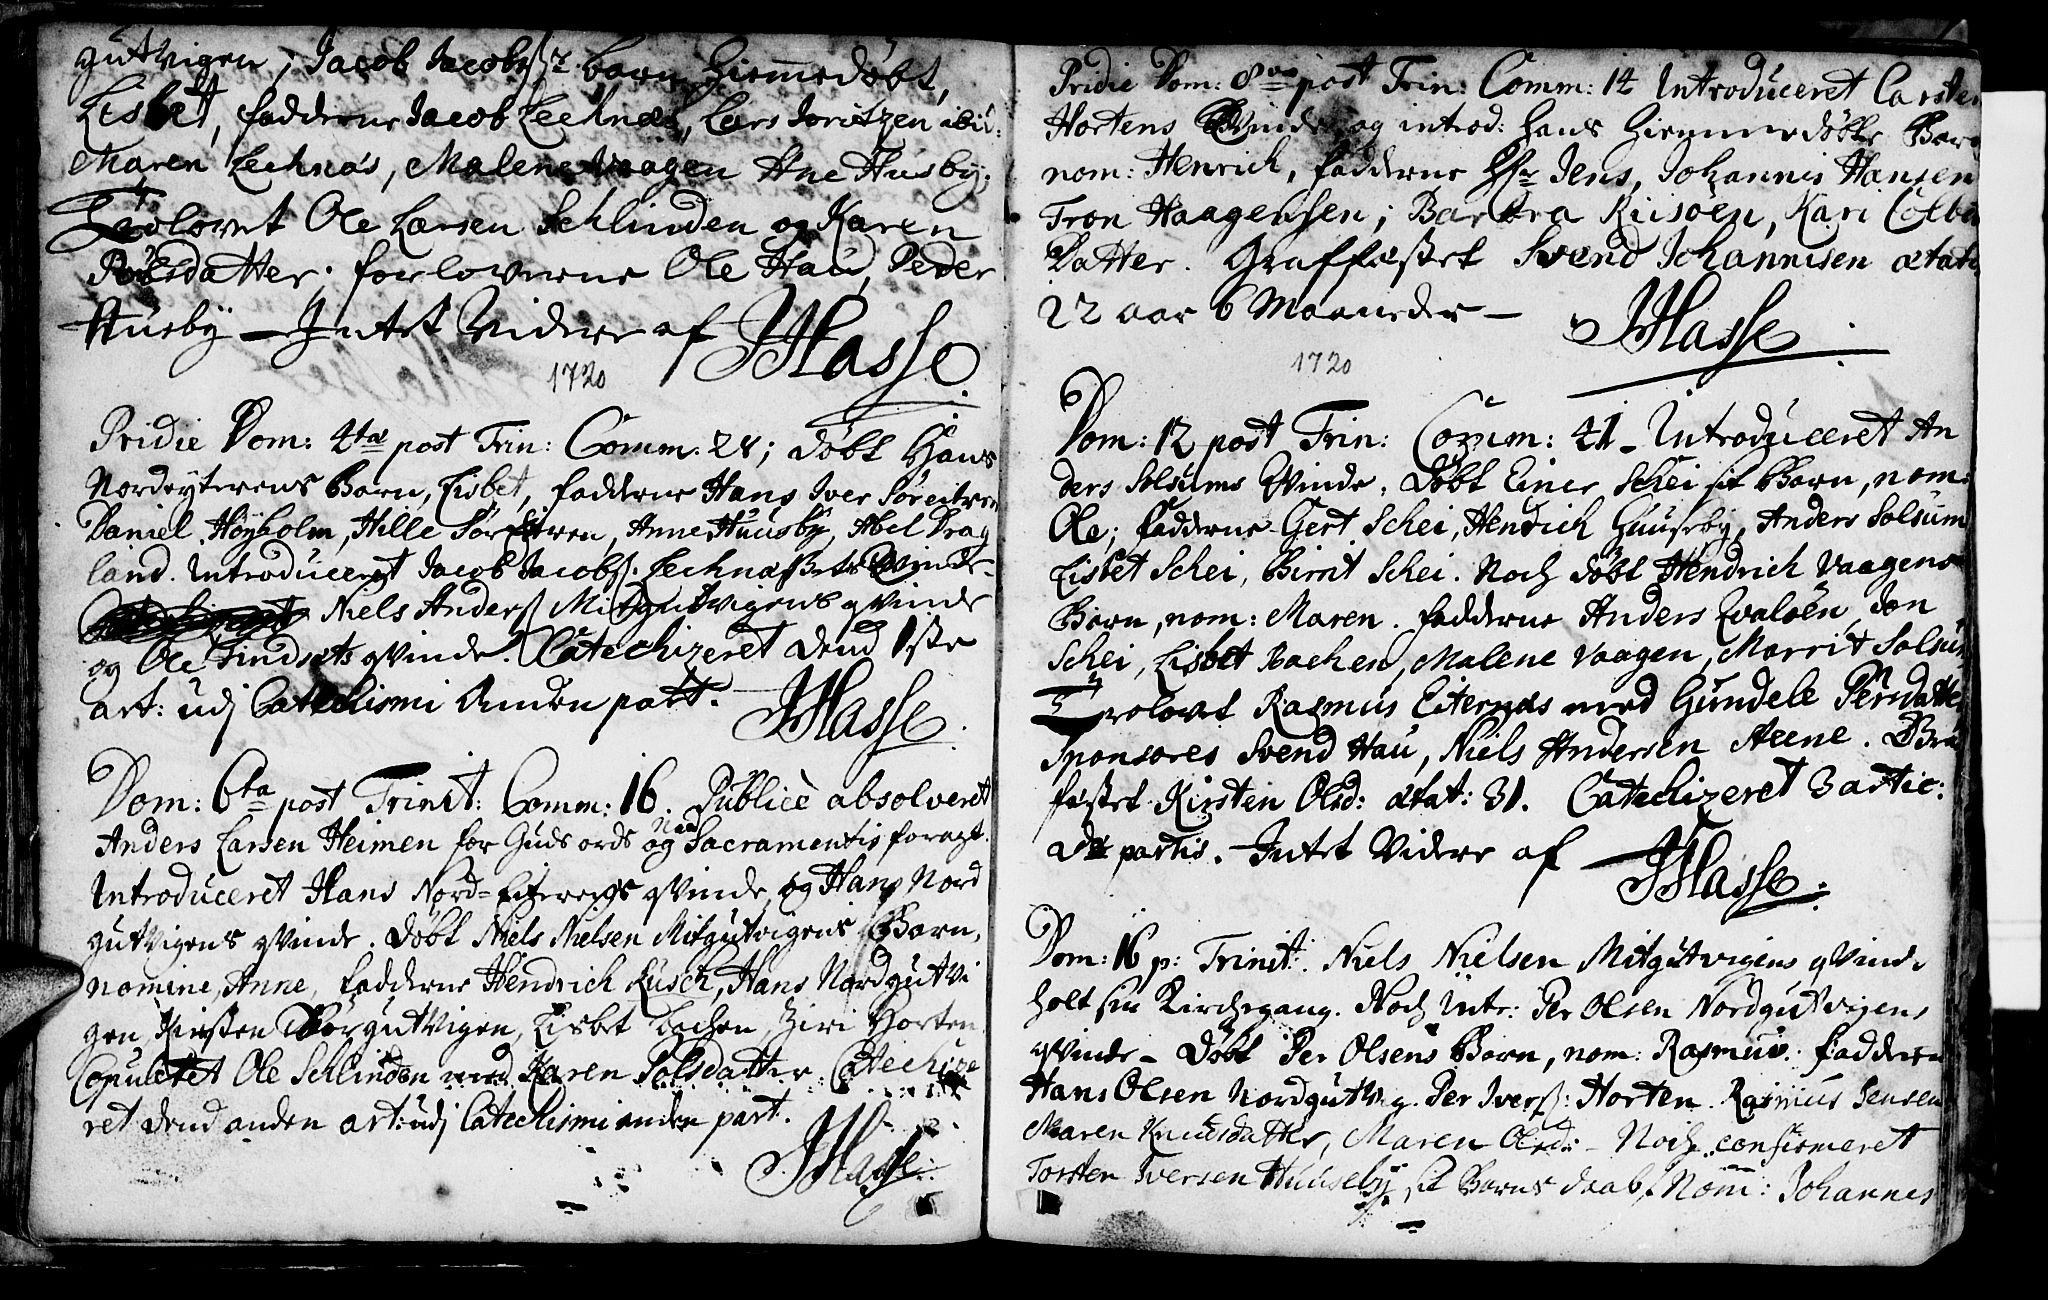 gutvigen, Jacob Jacobsßr barn hiemedøbt,
Lisbet, fadderne Jacob Lechnæs, Lars Joritzen ibid:
Maren Lechnæs, Malene Vaagen Ane Husby;
Trolovet Ole Larsen Schlinden og Karen
Poelsdatter. forloverne Ole Hau, Peder
Husby – Intet Videre af JHasse
1720
Pridie Dom: 4ta post Trin: Comm: 28; døbt Hans
Nordeyterens Barn, Lisbet, fadderne Hans Iver Søreitren
Daniel Høyholm, Hille Søreitren, Anne Huusby, Abel Drag
land. Introduceret Jacob Jacobß. Lechnæßets Qvinde
Niels Anderß Mitgutvigens qvinde
og Ole Findsets qvinde. Catechizeret dend 1ste
art: udj Catechismi Anden part. JHasse
Dom: 6ta post Trinit: Comm: 16. Publicè absolveret
Anders Larsen Heimen for Guds ords og Nad Sacramentis foragt.
Introduceret Hans Nord-Eiterens qvinde, og Hans Nord
gutvigens qvinde. Døbt Niels Nielsen Mitgutvigens Barn,
nomine, Anne, fadderne Hendrich Kusch, Hans Nordgutvi
gen, Kirsten Sørgutvigen, Lisbet Bachen, Ziri Horten
Copuleret Ole Schlinden med Karen Polsdatter. Catechize
ret dend anden art: udj Catechismi anden part.
JHasse
Pridie Dom: 8va post Trin: Comm: 14 Introduceret Carsten
Hortens Qvinde, og introd: hans hiemmedøbte Barn
nom: Henrich, fadderne Hr Jens, Johannis Hansen
Tron Haagensen; Barbra Riisøen, Kari Colbens
Datter. Graffæstet Svend Johannisen ætatis
22 aar 6 Maaneder – JHasse
1720
Dom: 12 post Trin: Comm: 41 – Introduceret An
ders Solsums Qvinde. Døbt Einer Schei sit Barn, nom:
Ole; fadderne Gert Schei, Hendrich Huusby, Anders Solsum
Lisbet Schei, Birrit Schei. Noch døbt Hendrich Vaagens
Barn, nom: Maren. fadderne Anders Evaløen, Jon
Schei, Lisbet Bachen, Malene Vaagen, Marrit Solsum
Trolovet Rasmus Eiternæs med Gundele Persdatter
Sponsores Svend Hau, Niels Andersen Aeene. Gra
fæstet Kirsten Olsd: ætat: 31. Catechizeret 3 artic:
2dæ partis. Intet Videre af JHasse
Dom: 16 p: Trinit: Niels Nielsen Mitgutvigens qvinde
holt sin Kirchegang. Noch Intr: Per Olsen Nordgutvigens
qvinde – Døbt Per Olsens Barn, nom: Rasmus. fadderne
Hans Olsen Nordgutvig. Per Iverß: Horten. Rasmus Jensen
Maren Knudsdatter, Maren Olsd: – Noch confirmeret
Torsten Iversen Huuseby sit Barns daab, Nom: Johannes